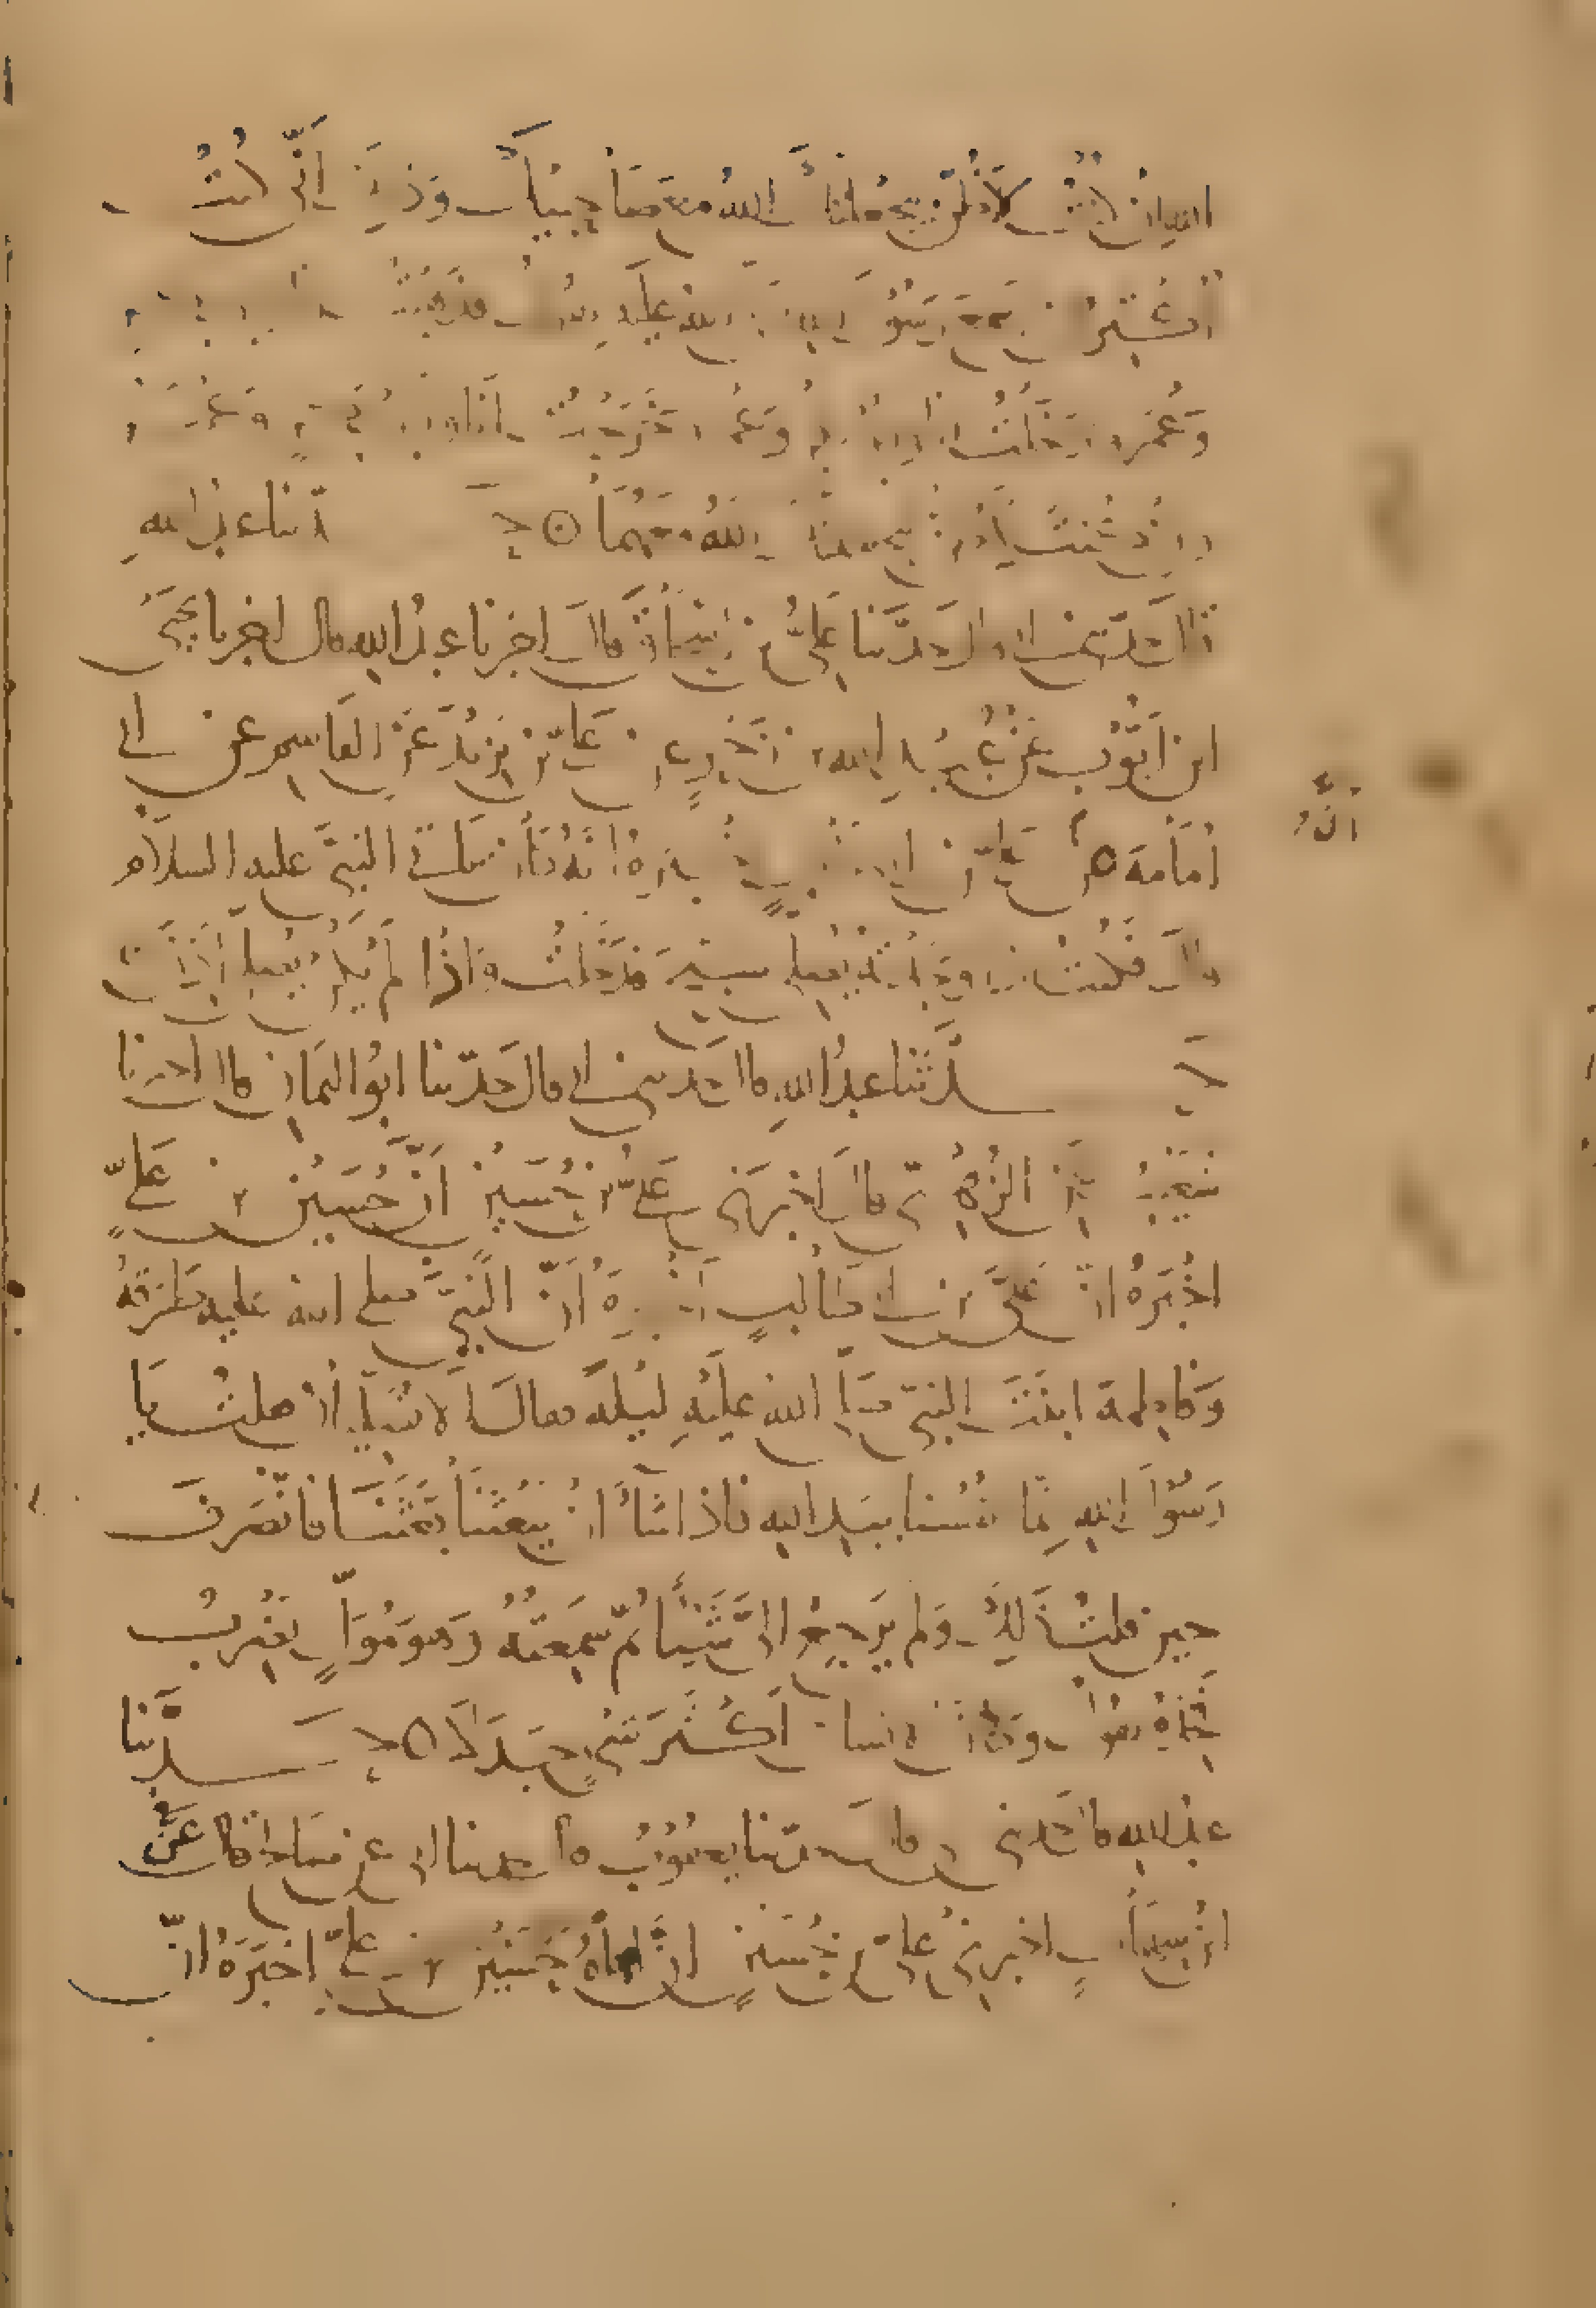 الله ان كنت لاظن ليجعلنك الله مع صاحبيك وذلك اني كنت
اكثر ان اسمع رسول الله صلى الله عليه يقول فذهبت انا وابو بكر
وعمر ودخلت انا وابو بكر وعمر وخرجت انا وابو بكر وعمر
وان كنت لاظن ليجعلنك الله معهما ⊙ حدثنا عبد الله
قال حدثني ابي قال حدثنا علي بن اسحاق قال اخبرنا عبد الله قال اخبرنا يحيى
ابن ايوب عن عبيد الله بن زحر عن علي بن يزيد عن القاسم عن ابي
امامة عن علي بن ابي طالب اخبره انه كان ياتي النبي عليه السلام
قال فكنت اذا وجدته يصلي سبح فدخلت واذا لم يكن يصلي اذن
حدثنا عبد الله قال حدثني ابي قال حدثنا ابو اليمان قال اخبرنا
شعيب عن الزهري قال اخبرني علي بن حسين ان حسين بن علي
اخبره ان علي بن ابي طالب اخبره ان النبي صلى الله عليه طرقه
وفاطمة ابنت النبي صلى الله عليه ليلة فقال الا تصليان فقلت يا
رسول الله انما انفسنا بيد الله فاذا شاء ان يبعثنا بعثنا فانصرف
حين قلت ذلك ولم يرجع الي شيئا ثم سمعته وهو مول يضرب
فخذه يقول وكان الانسان اكثر شي جدلا ه حدثنا
عبد الله قال حدثني ابي قال حدثنا يعقوب قال حدثنا ابي عن صالح قال عن
ابن شهاب اخبرني علي بن حسين ان اباه حسين بن علي اخبره ان